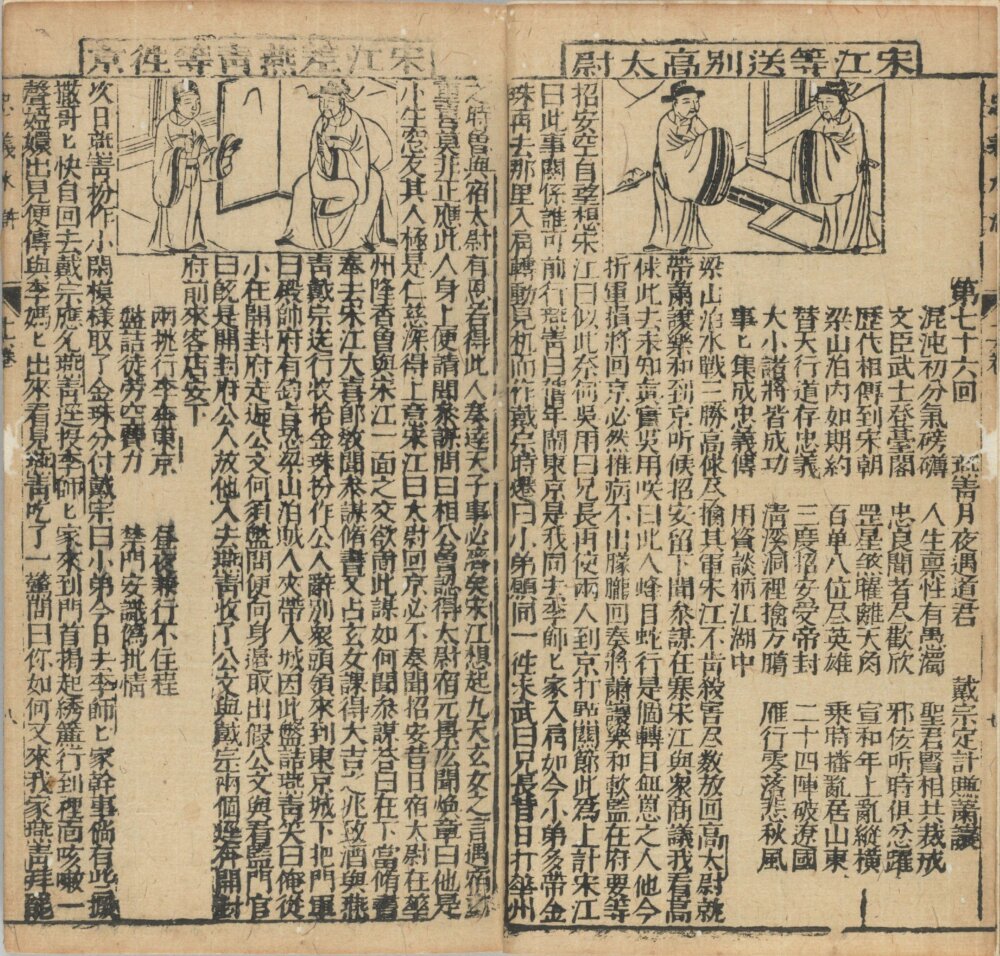 宋江等送別高太尉
第七十六回 燕青月夜遇道君 戴宗定計賺蕭讓
混沌初分氣磅礴 人生稟性有愚濁 聖君賢相共裁成
文臣武士登臺閣 忠良聞者尽歡欣 邪佞听時俱忿躍
歷代相傳到宋朝 罡星煞曜離天角 宣和年上亂縱橫
梁山泊內如期約 百单八位尽英雄 乘時播亂居山東
替天行道存忠義 三度招安受帝封 二十四陣破遼國
大小諸將皆成功 清溪洞裡擒方臘 雁行零落悲秋風
事匕集成忠義傳 用資談柄江湖中
梁山泊水戰三勝高俅及擒其軍宋江不肯殺害及教放回高太尉就
帶蕭讓樂和到京听候招安留下聞參謀在寨宋江與衆商議我看高
俅此去未知真實吳用咲曰此人蜂目蛇行是個轉目無恩之人他今
折軍損將回京必然推病不出朦朧回奏將蕭讓樂和軟監在府要等
招安空自孳想宋江曰似此奈何吳用曰兄長再使兩人到京打點關節此爲上計宋江
曰此事關係誰可前行燕青曰舊年閙東京是我同去李師匕家入肩如今小弟多帶金
珠再去那里入肩轉動見机而作戴宗時遷曰小弟願同一徃朱武曰兄長昔日打華州
宋江差燕青等徃京
之時曾與宿太尉有恩若得此人奏達天子事必濟矣宋江想起九天玄女之言遇宿
重重喜莫非正應此人身上便請聞參謀問曰相公曾認得太尉宿元景広聞煥章曰他是
小生窓友其人極是仁慈深得上意宋江曰太尉回京必不奏聞招安昔日宿太尉在華
州隆香曾與宋江一面之交欲啇此謀如何聞參謀答曰在下當脩書
奉去宋江大喜即教聞參謀脩書又占玄女課得大吉之兆致酒與燕
青戴宗送行收拾金珠扮作公人辭別衆頭領來到東京城下把門軍
曰殿帥府有鈞旨恐梁山泊賊人夾帶入城因此盤詰燕青笑曰俺從
小在開封府走迯公文何須盤問便向身邊取出假公文與看監門官
曰既是開封府公人放他入去燕青收了公文與戴宗兩個逕奔開封
府前來客店安下
兩挑行李奔東京 晝夜兼行不住程
盤詰徒勞空費力 禁門安識僞批情
次日燕青扮作小閑模樣取了金珠分付戴宗曰小弟今日去李師匕家幹事倘有些撅
撒哥匕快自回去戴宗應允燕青逕投李師匕家來到門首揭起綉簾行到裡面咳嗽一
聲姪嬛出見便傳與李媽匕出來看見燕青吃了一驚問曰你如何又來我家燕青拜罷